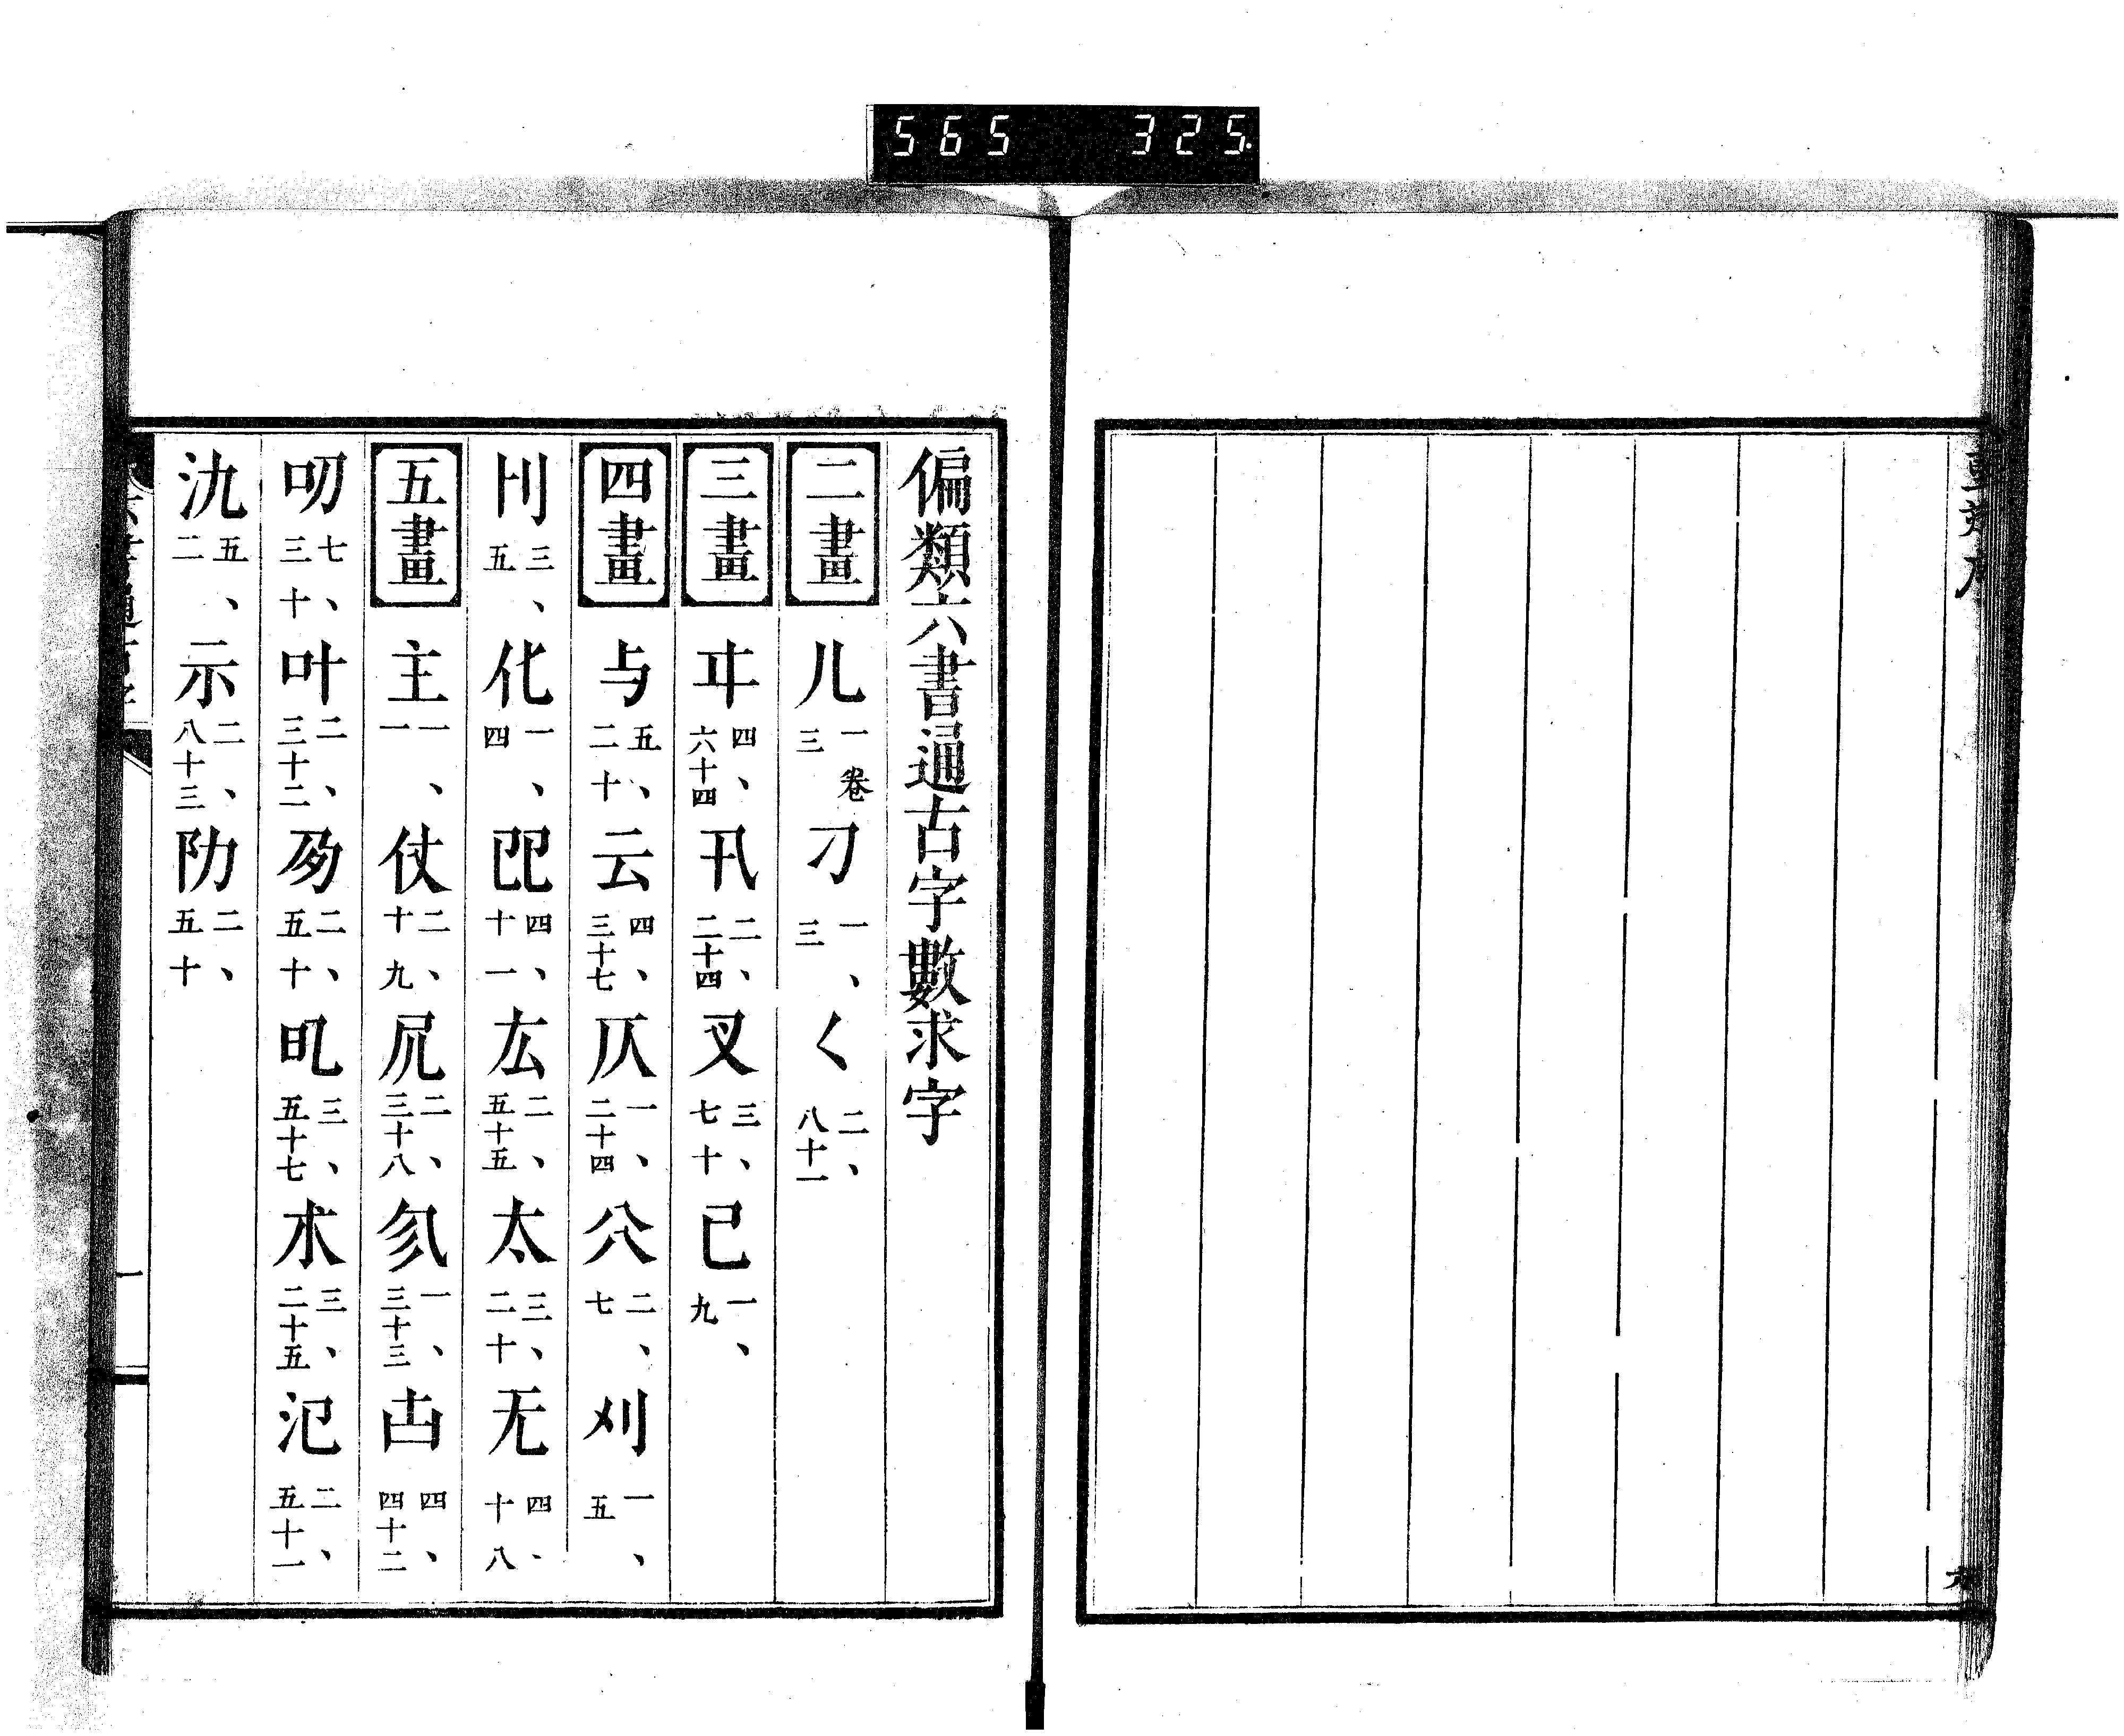 565 325.
偏類六書通古字數求字
二畫 儿 一卷三 刁 一、三 く 二、八十一
三畫 㐄 四、六十四 卂 二、二十四 叉 三、七十 已 一、九
四畫 与 五、二十 云 四、三十七 仄 一、二十四 公 二、七 刈 一、五
刋 三、五 化 一、四 四、十一 厷 二、五十五 太 三、二十 无 四、十八
五畫 主 一、一 仗 二、十九 尻 二、三十八 一、三十三 四、四十二
叨 七、三十 叶 二、三十二 二、五十 三、五十七 朮 三、二十五 氾 二、五十一
氿 五、二 示 二、八十三 阞 二、五十
一